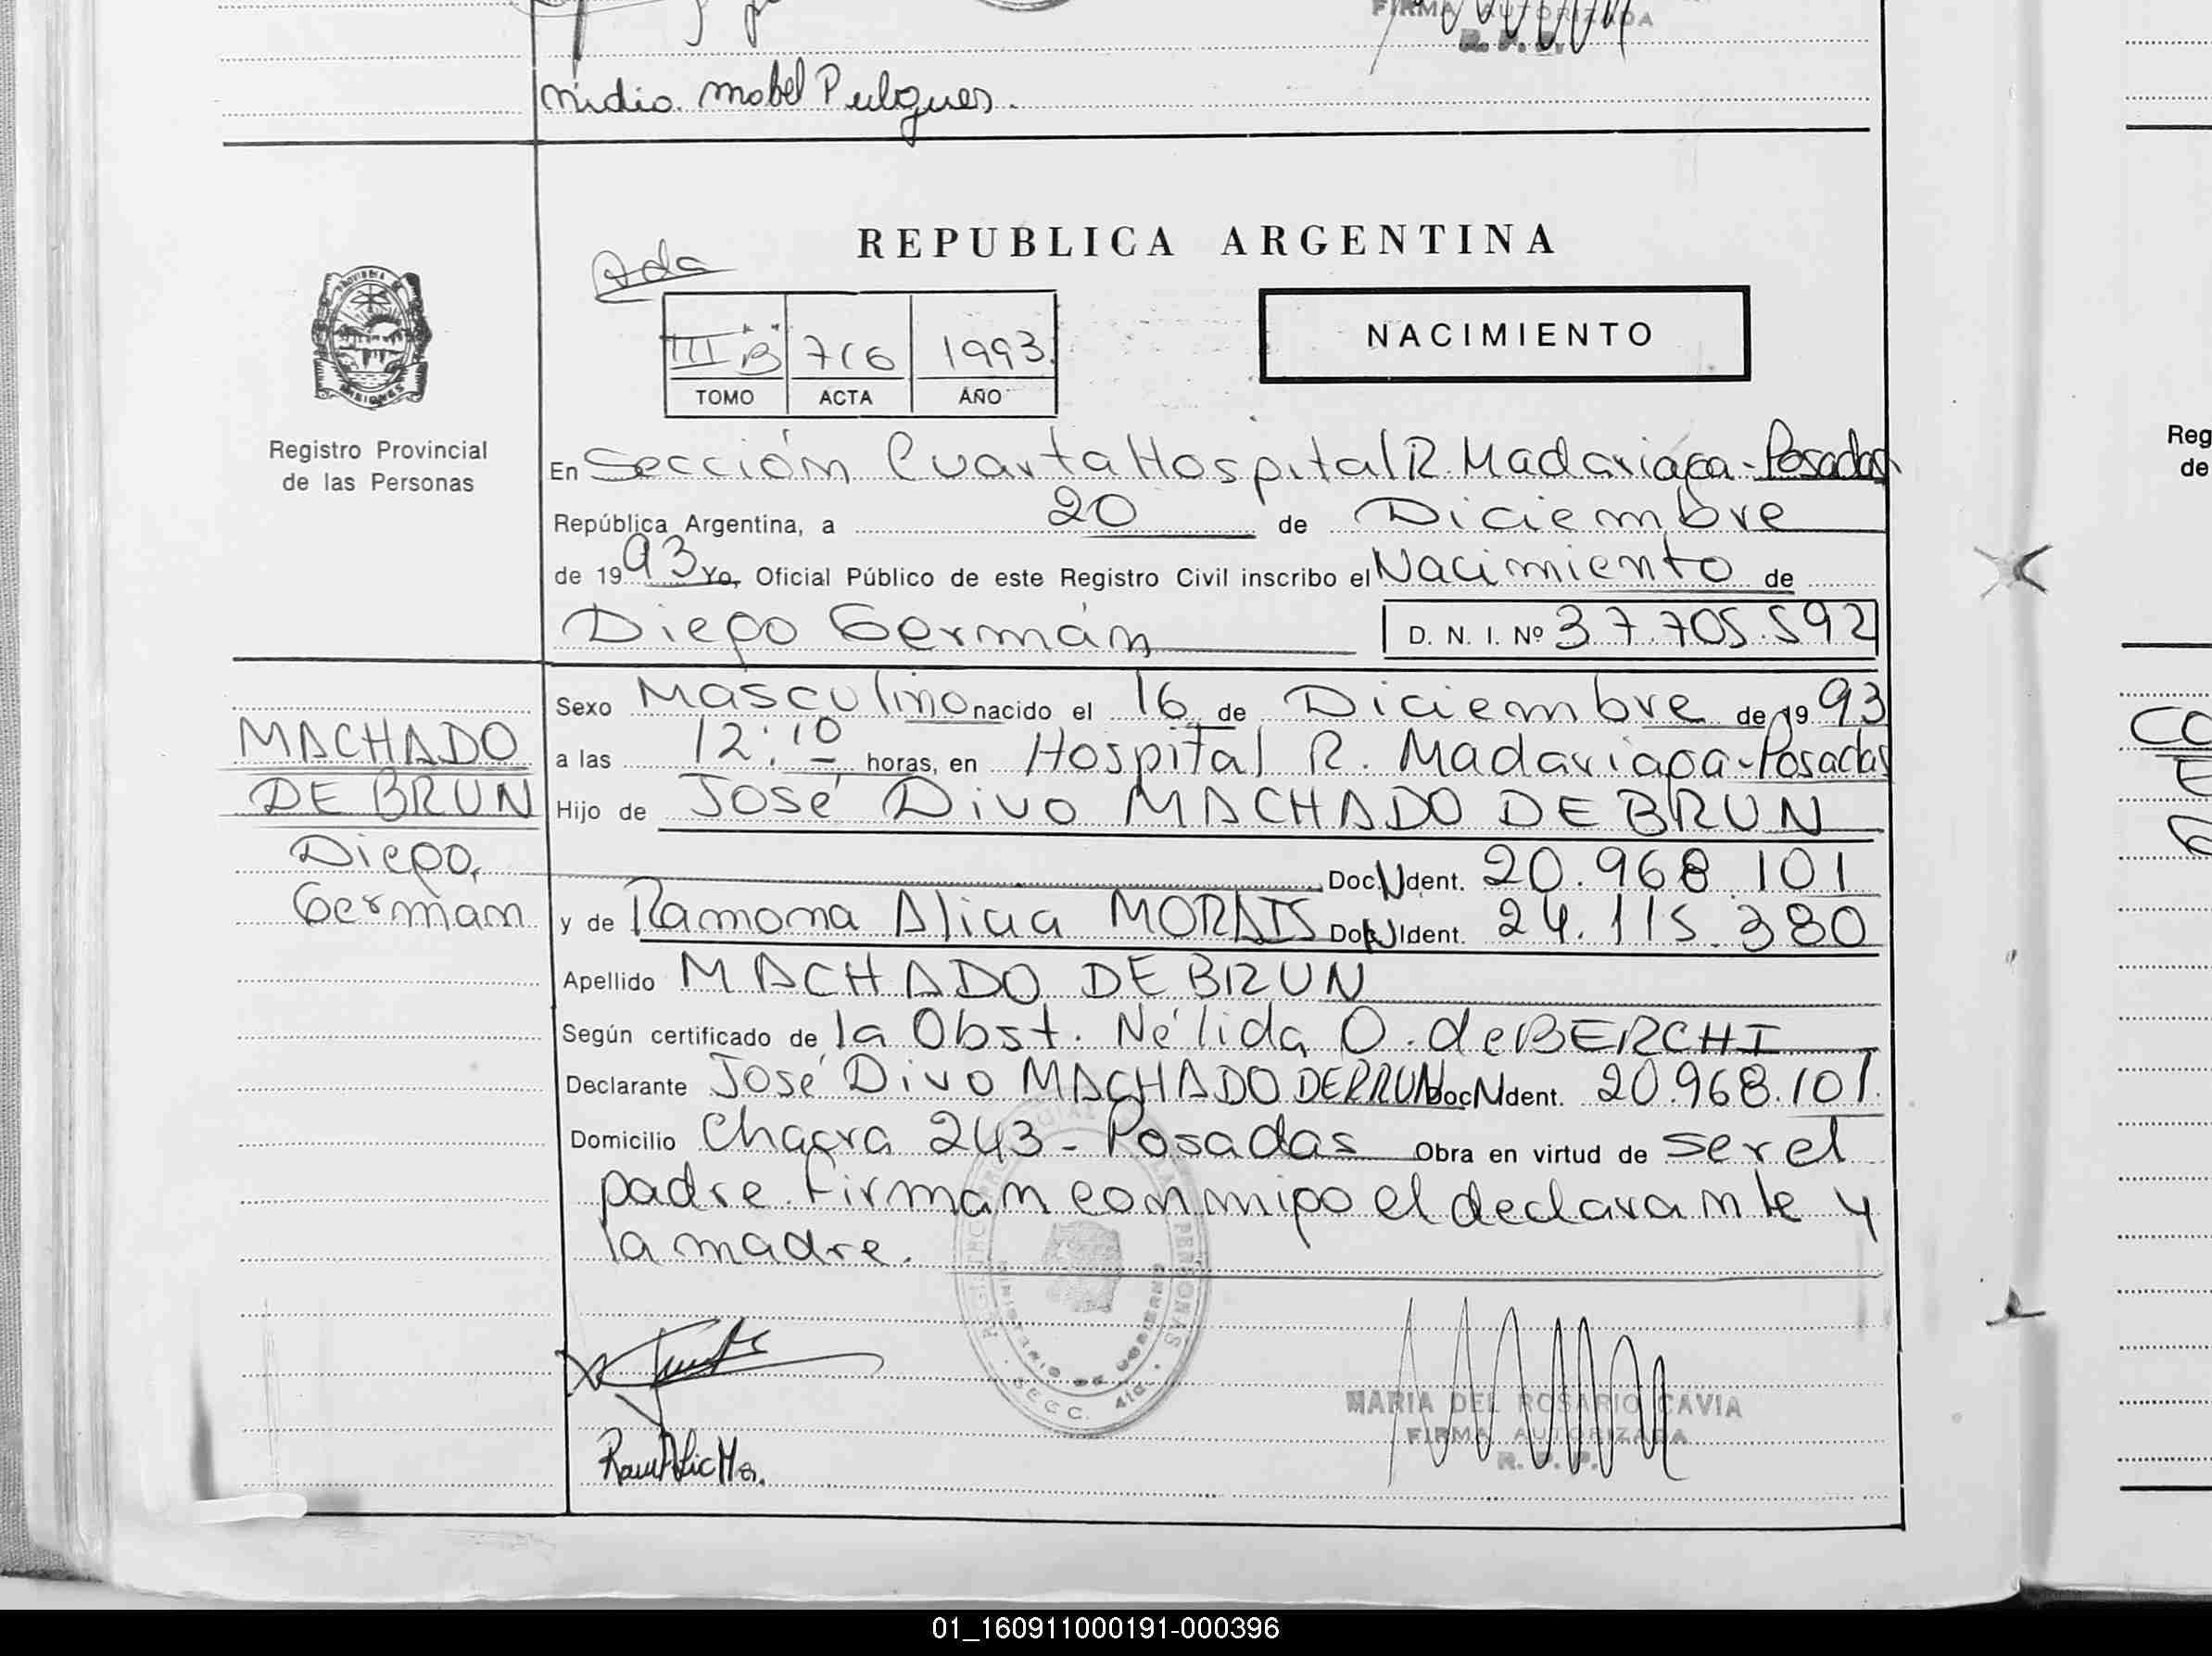 FIRMA AUTORIZADA
R. P. P.
REPUBLICA ARGENTINA
III "B" 716 1993
TOMO ACTA AÑO
NACIMIENTO
Registro Provincial
de las Personas
En Sección Cuarta Hospital R. Madariaga - Posadas
República Argentina, a 20 de Diciembre
de 1993 Yo, Oficial Público de este Registro Civil inscribo el Nacimiento de
Diego Germán D. N. I. Nº 37.705.592
MACHADO
DE BRUN
Diego,
German
Sexo Masculino nacido el 16 de Diciembre de 1993
a las 12:10 horas, en Hospital R. Madariaga - Posadas
Hijo de José Divo MACHADO DE BRUN
Doc. Ident. 20.968 101
y de Ramona Alicia MORAIS Doc. Ident. 24.115.380
Apellido MACHADO DE BRUN
Según certificado de la Obst. Nélida O. de BERCHI
Declarante José Divo MACHADO DE BRUN Doc. Ident. 20.968.101
Domicilio Chacra 243 - Posadas Obra en virtud de ser el
padre. Firman conmigo el declarante y
la madre.
MARIA DEL ROSARIO CAVIA
FIRMA AUTORIZADA
R. P. P.
Reg
de
01_160911000191-000396